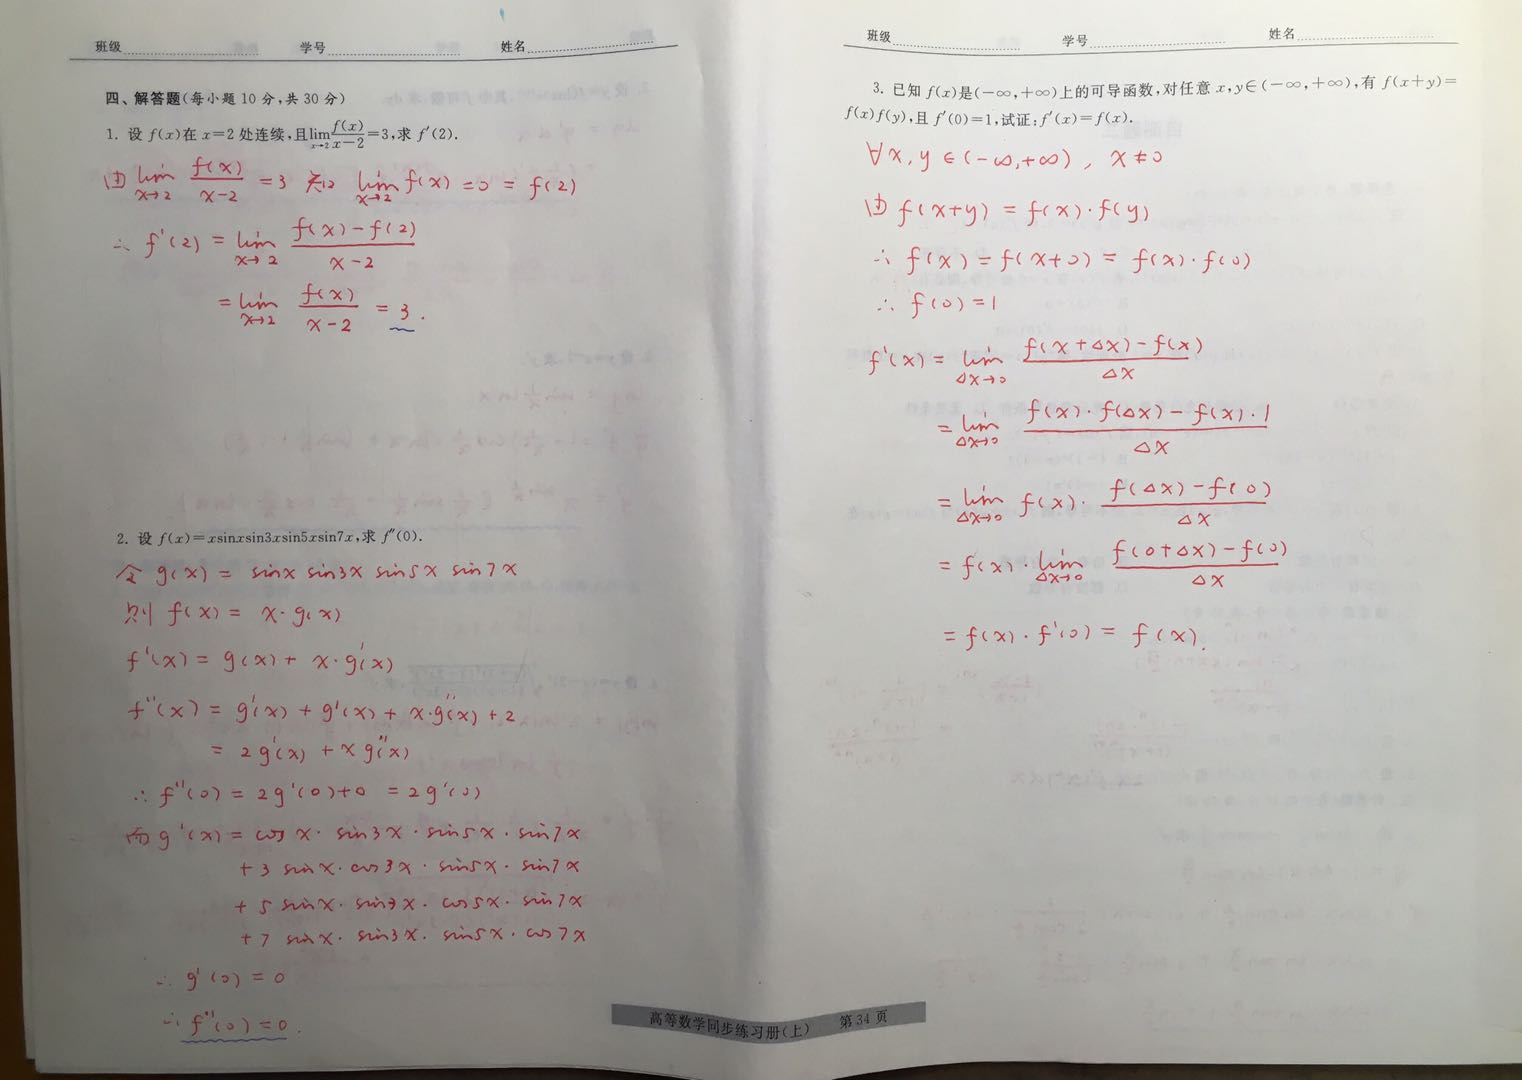 班级 学号 姓名
四、解答题(每小题10分,共30分)
1. 设 f(x)在 x=2 处连续,且lim_{x→2} f(x)/(x-2)=3,求 f′(2).
由 lim_{x→2} f(x)/(x-2) = 3 知 lim_{x→2} f(x) = 0 = f(2)
∴ f'(2) = lim_{x→2} (f(x)-f(2))/(x-2)
= lim_{x→2} f(x)/(x-2) = 3.
2. 设 f(x)=xsinxsin3xsin5xsin7x,求 f″(0).
令 g(x) = sinx sin3x sin5x sin7x
则 f(x) = x·g(x)
f'(x) = g(x) + x·g'(x)
f''(x) = g'(x) + g'(x) + x·g''(x) + 2
= 2g'(x) + xg''(x)
∴ f''(0) = 2g'(0)+0 = 2g'(0)
而 g'(x) = cosx·sin3x·sin5x·sin7x
+3 sinx·cos3x·sin5x·sin7x
+5 sinx·sin3x·cos5x·sin7x
+7 sinx·sin3x·sin5x·cos7x
∴ g'(0) = 0
∴ f''(0) = 0.
班级 学号 姓名
3. 已知 f(x)是(-∞,+∞)上的可导函数,对任意 x,y∈(-∞,+∞),有 f(x+y)=
f(x)f(y),且 f′(0)=1,试证:f′(x)=f(x).
∀x,y∈(-∞,+∞), x≠0
由 f(x+y) = f(x)·f(y)
∴ f(x) = f(x+0) = f(x)·f(0)
∴ f(0)=1
f'(x) = lim_{Δx→0} (f(x+Δx)-f(x))/Δx
= lim_{Δx→0} (f(x)·f(Δx)-f(x)·1)/Δx
= lim_{Δx→0} f(x)·(f(Δx)-f(0))/Δx
= f(x)·lim_{Δx→0} (f(0+Δx)-f(0))/Δx
= f(x)·f'(0) = f(x).
高等数学同步练习册(上) 第34页